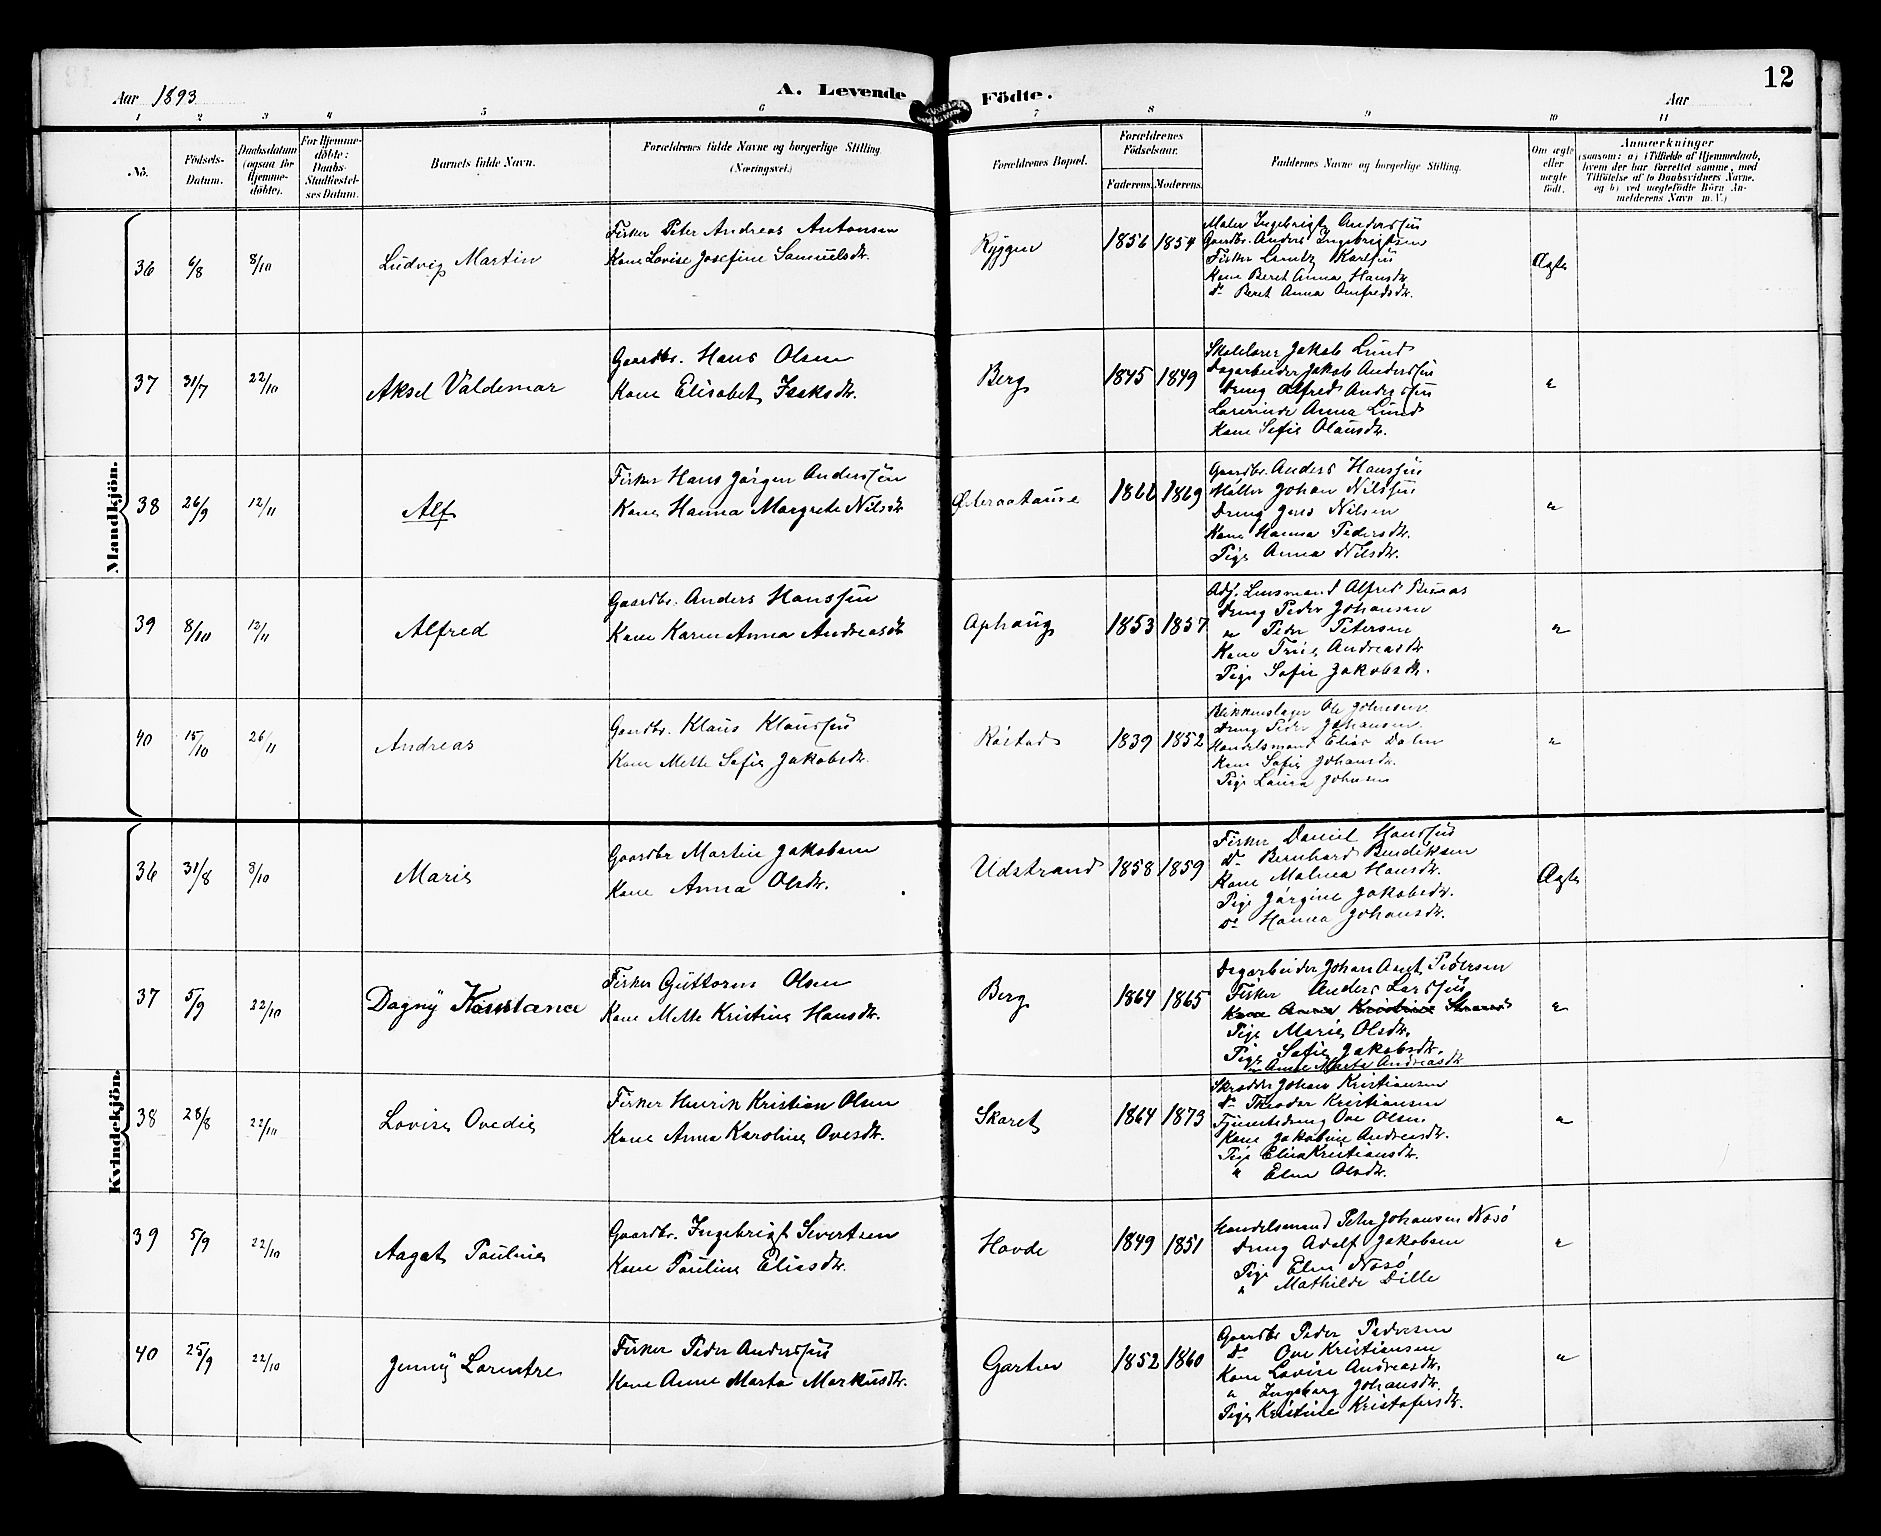 12
Aar 1893
A. Levende Födte.
Aar
1 2 3 4 5 6 7 8 9 10 11
No.
Födsels-Datum.
Daabsdatum (ogsaa for Hjemme-döbte).
For Hjemme-döbte: Daabs-Stadfæstel-ses Datum.
Barnets fulde Navn.
Forældrenes fulde Navne og borgerlige Stilling (Næringsvei.)
Forældrenes Bopæl.
Forældrenes Födselsaar.
Faderens. Moderens.
Faddernes Navne og borgerlige Stilling.
Om ægte eller uægte födt.
Anmerkninger
(saasom: a) i Tilfælde af Hjemmedaab,
hvem der har forrettet samme, med
Tilföielse af to Daabsvidners Navne.
og b) ved uægtefödte Börn An-
melderens Navn m. V.)
Mandkjön.
36 6/8 8/10 Ludvig Martin
Fisker Peter Andreas Antonsen
Kone Lovise Josefine Samuelsdtr.
Ryggen 1856 1854
Maler Ingebrigt Anderssen
Gaardbr. Anders Ingebrigtsen
Fisker Karlsen
Kone Beret Anna Hansdtr
do Beret Anna Amfredsdtr.
Ægte
37 31/7 22/10 Aksel Valdemar
Gaardbr. Hans Olsen
Kone Elisabet Isaksdtr.
Berg 1845 1849
Skolelærer Jakob Lund
Dagarbeider Jakob Anderssen
Dreng Alfred Anderssen
Lærerinde Anna Lund
Kone Sofie Olausdtr.
"
38 26/9 12/11 Alf
Fisker Hans Jørgen Anderssen
Kone Hanna Margrete Nilsdtr
1869
Gaardbr. Anders Hanssen
Møller Johan Nilssen
Dreng Jens Nilsen
Kone Hanna Pedersdtr.
Pige Anna Nilsdtr.
"
39 8/10 12/11 Alfred
Gaardbr. Anders Hanssen
Kone Karen Anna Andreasdtr
Ophaug 1853 1857
Adj. Lensmand Alfred
Dreng Peder Johansen
" Peder Petersen
Kone Trine Andreasdtr
Pige Sofie Jakobsdtr.
"
40 15/10 26/11 Andreas
Gaardbr. Klaus Klaussen
Kone Mette Sofie Jakobsdtr.
Røstad 1839 1852
Blikkenslager Ole Johnesen
Dreng Peder Johansen
Handelsmand Elias Dalen
Kone Sofie Johansdtr.
Pige Laura Johnsen
"
Kvindekjön.
36 31/8 8/10 Marie
Gaardbr Martin Jakobsen
Kone Anna Olsdtr.
Udstrand 1858 1859
Fisker Daniel Hanssen
do Bernhard Bendiksen
Kone Malena Hansdtr.
Pige Jørgine Jakobsdtr.
do Hanna Johansdtr.
Ægte
37 5/9 22/10 Dagny Konstance
Fisker Guttorm Olsen
Kone Mette Kristine Hansdtr.
Berg 1864 1865
Dagarbeider Johan Arnt Pedersen
Fisker Anders Larssen
Kone Anna Kristine Strand
Pige Marie Olsdtr.
Pige Sofie Jakobsdtr.
" Anne Marta Andreasdtr
"
38 28/8 22/10 Lovise Ovedie
Fisker Henrik Kristian Olsen
Kone Anna Karoline Ovesdtr.
Skaret 1864 1873
Skrædder Johan Kristiansen
do Theodor Kristiansen
Tjenestedreng Ove Olsen
Kone Jakobine Andreasdtr.
Pige Elisa Kristiansdtr.
" Elen Olsdtr.
"
39 5/9 22/10 Aagat Pauline
Gaardbr. Ingebrigt Sivertsen
Kone Pauline Eliasdtr.
Hovde 1849 1851
Handelsmand Peter Johansen Nesø
Dreng Adolf Jakobsen
Pige Elen Nesø
" Mathilde Dille
"
40 25/9 22/10 Jenny Lorentze
Fisker Peder Anderssen
Kone Anne Marta Markusdtr.
Garten 1852 1860
Gaardbr Peder Pedersen
do Ove Kristiansen
Kone Lovise Andreasdtr.
" Ingeborg Johansdtr.
Pige Kristine Kristofersdtr.
"